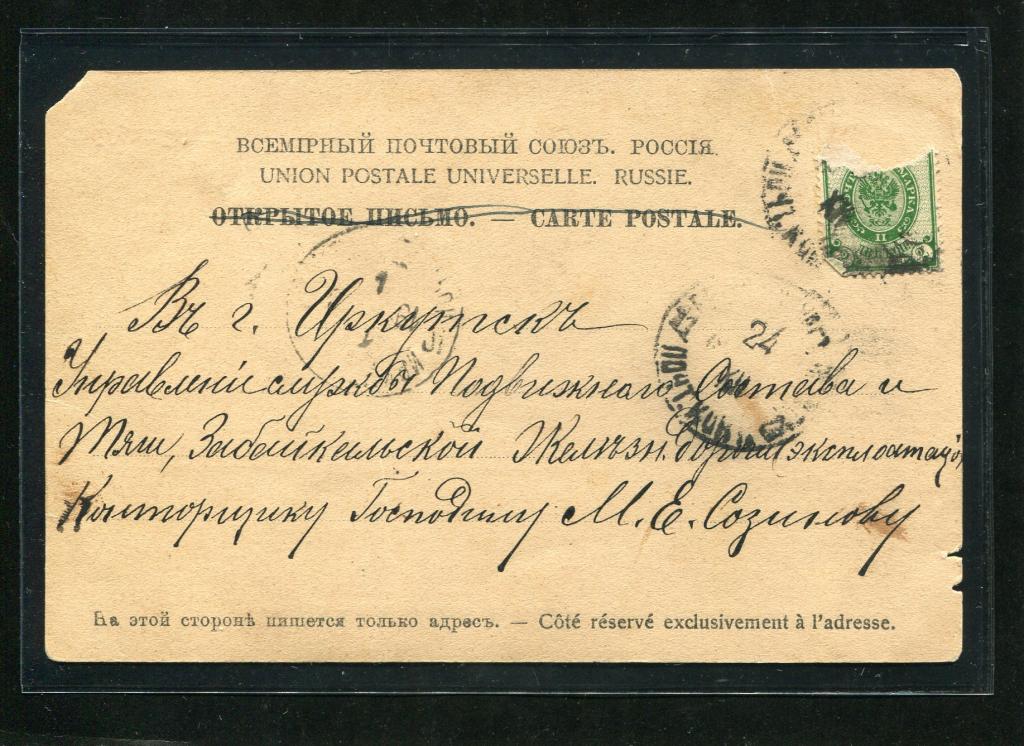 ВСЕМІРНЫЙ ПОЧТОВЫЙ СОЮЗЪ. РОССІЯ.
UNION POSTALE UNIVERSELLE. RUSSIE.
ОТКРЫТОЕ ПИСЬМО. — CARTE POSTALE.
Въ г. Иркутскъ
Управленіе службы Подвижнаго Состава и
Тяги, Забайкальской Желѣзн. Дороги
Конторщику Господину М. Е. Созинову
24
На этой сторонѣ пишется только адресъ. — Côté réservé exclusivement à l'adresse.